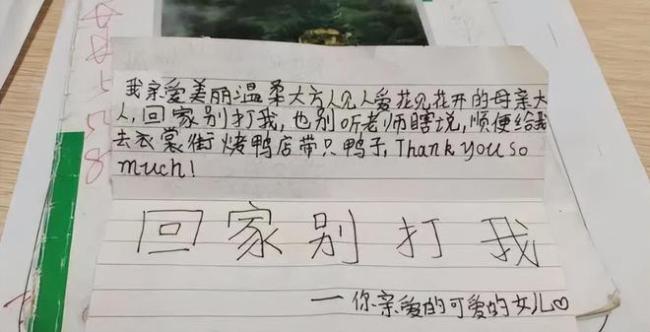 我亲爱美丽温柔大方人见人爱花见花开的母亲大
人,回家别打我,也别听老师瞎说,顺便给我
去衣裳街烤鸭店带只鸭子,Thank you so
much!
回家别打我
——你亲爱的可爱的女儿♡